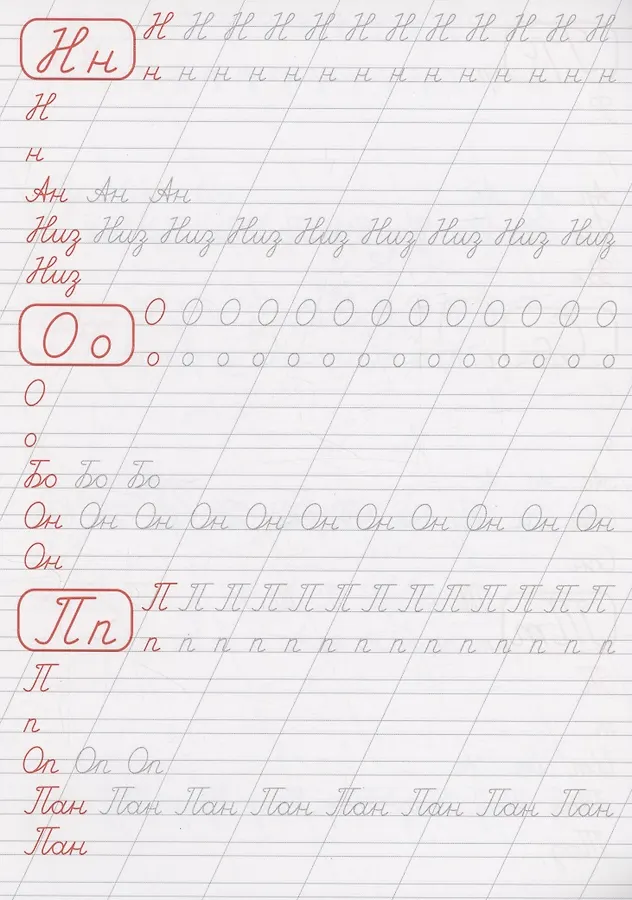 Н н
Н Н Н Н Н Н Н Н Н Н Н Н
н н н н н н н н н н н н н н
Н
н
Ан Ан Ан
Низ Низ Низ Низ Низ Низ Низ Низ Низ
Низ
О о
О О О О О О О О О О О О О
о о о о о о о о о о о о о о
О
о
Бо Бо Бо
Он Он Он Он Он Он Он Он Он Он Он
Он
П п
П П П П П П П П П П П П П
п п п п п п п п п п п п п п
П
п
Оп Оп Оп
Пан Пан Пан Пан Пан Пан Пан Пан
Пан